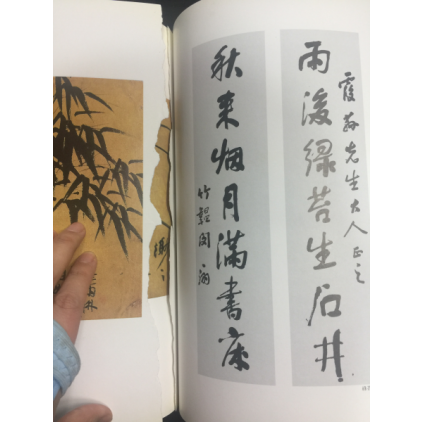 雨後綠苔生石井
霞菴先生大人正之
秋來烟月滿書床
竹禪閔